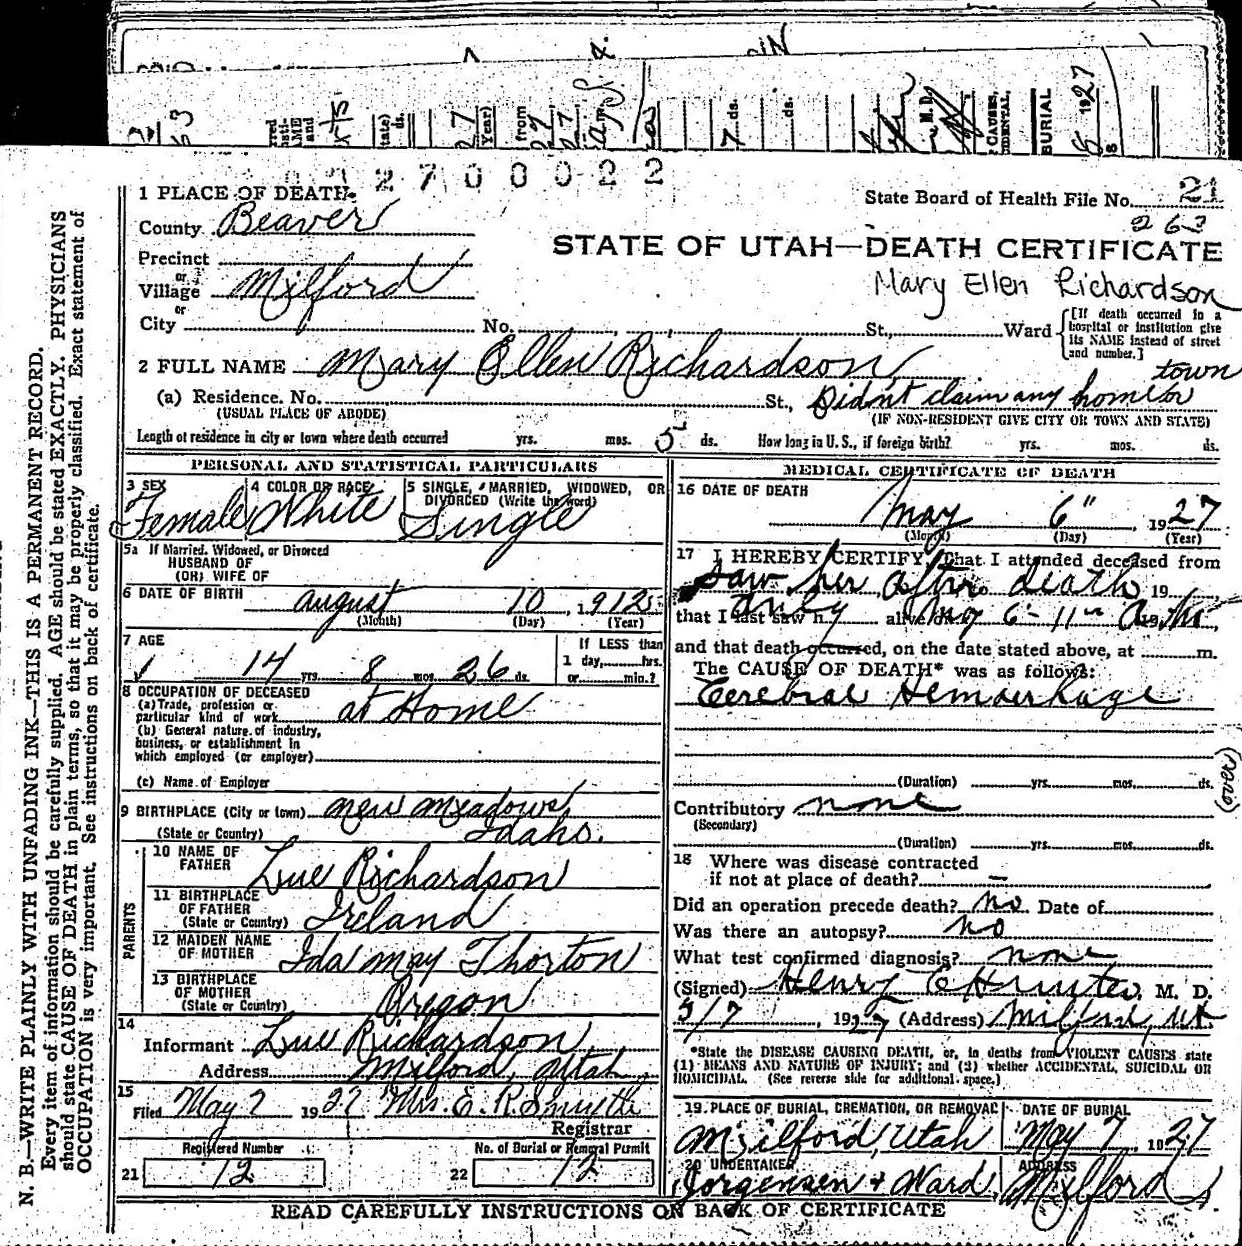 2700022
1 PLACE OF DEATH.
State Board of Health File No. 21
263
County Beaver
STATE OF UTAH—DEATH CERTIFICATE
Precinct
or
Village Milford
Mary Ellen Richardson
or
City No. St., Ward
[If death occurred in a hospital or institution give its NAME instead of street and number.]
2 FULL NAME Mary Ellen Richardson
(a) Residence. No. St., Didn't claim any home or town
(USUAL PLACE OF ABODE) (IF NON-RESIDENT GIVE CITY OR TOWN AND STATE)
Length of residence in city or town where death occurred yrs. mos. 5 ds. How long in U. S., if foreign birth? yrs. mos. ds.
PERSONAL AND STATISTICAL PARTICULARS
3 SEX Female
4 COLOR OR RACE White
5 SINGLE, MARRIED, WIDOWED, OR DIVORCED (Write the word) Single
5a If Married, Widowed, or Divorced
HUSBAND OF
(OR) WIFE OF
6 DATE OF BIRTH August 10, 1912
(Month) (Day) (Year)
7 AGE
14 yrs. 8 mos. 26 ds.
If LESS than
1 day, hrs.
or min.?
8 OCCUPATION OF DECEASED
(a) Trade, profession or
particular kind of work at Home
(b) General nature of industry,
business, or establishment in
which employed (or employer)
(c) Name of Employer
9 BIRTHPLACE (City or town) New Meadows,
(State or Country) Idaho.
PARENTS
10 NAME OF
FATHER Lue Richardson
11 BIRTHPLACE
OF FATHER
(State or Country) Ireland
12 MAIDEN NAME
OF MOTHER Ida May Thorton
13 BIRTHPLACE
OF MOTHER
(State or Country) Oregon
14
Informant Lue Richardson
Address Milford, Utah
15
Filed May 7 1927 Mrs. E. R. Smyth
Registrar
Registered Number
21 12
No. of Burial or Removal Permit
22 12
MEDICAL CERTIFICATE OF DEATH
16 DATE OF DEATH
May 6", 1927
(Month) (Day) (Year)
17 I HEREBY CERTIFY, That I attended deceased from
Saw her after death, 19
only
that I last saw h alive on May 6 - 11 A.M. 19
and that death occurred, on the date stated above, at m.
The CAUSE OF DEATH* was as follows:
Cerebral Hemorrhage
(Duration) yrs. mos. ds.
(over)
Contributory none
(Secondary)
(Duration) yrs. mos. ds.
18 Where was disease contracted
if not at place of death? —
Did an operation precede death? no Date of
Was there an autopsy? no
What test confirmed diagnosis? none
(Signed) Henry E Hunter M. D.
5/7, 1927 (Address) Milford, Ut.
*State the DISEASE CAUSING DEATH, or, in deaths from VIOLENT CAUSES state
(1) MEANS AND NATURE OF INJURY; and (2) whether ACCIDENTAL, SUICIDAL OR
HOMICIDAL. (See reverse side for additional space.)
19 PLACE OF BURIAL, CREMATION, OR REMOVAL DATE OF BURIAL
Milford, Utah May 7, 1927
20 UNDERTAKER ADDRESS
Jorgensen & Ward. Milford
READ CAREFULLY INSTRUCTIONS ON BACK OF CERTIFICATE
N. B.—WRITE PLAINLY WITH UNFADING INK—THIS IS A PERMANENT RECORD.
Every item of information should be carefully supplied. AGE should be stated EXACTLY. PHYSICIANS
should state CAUSE OF DEATH in plain terms, so that it may be properly classified. Exact statement of
OCCUPATION is very important. See instructions on back of certificate.